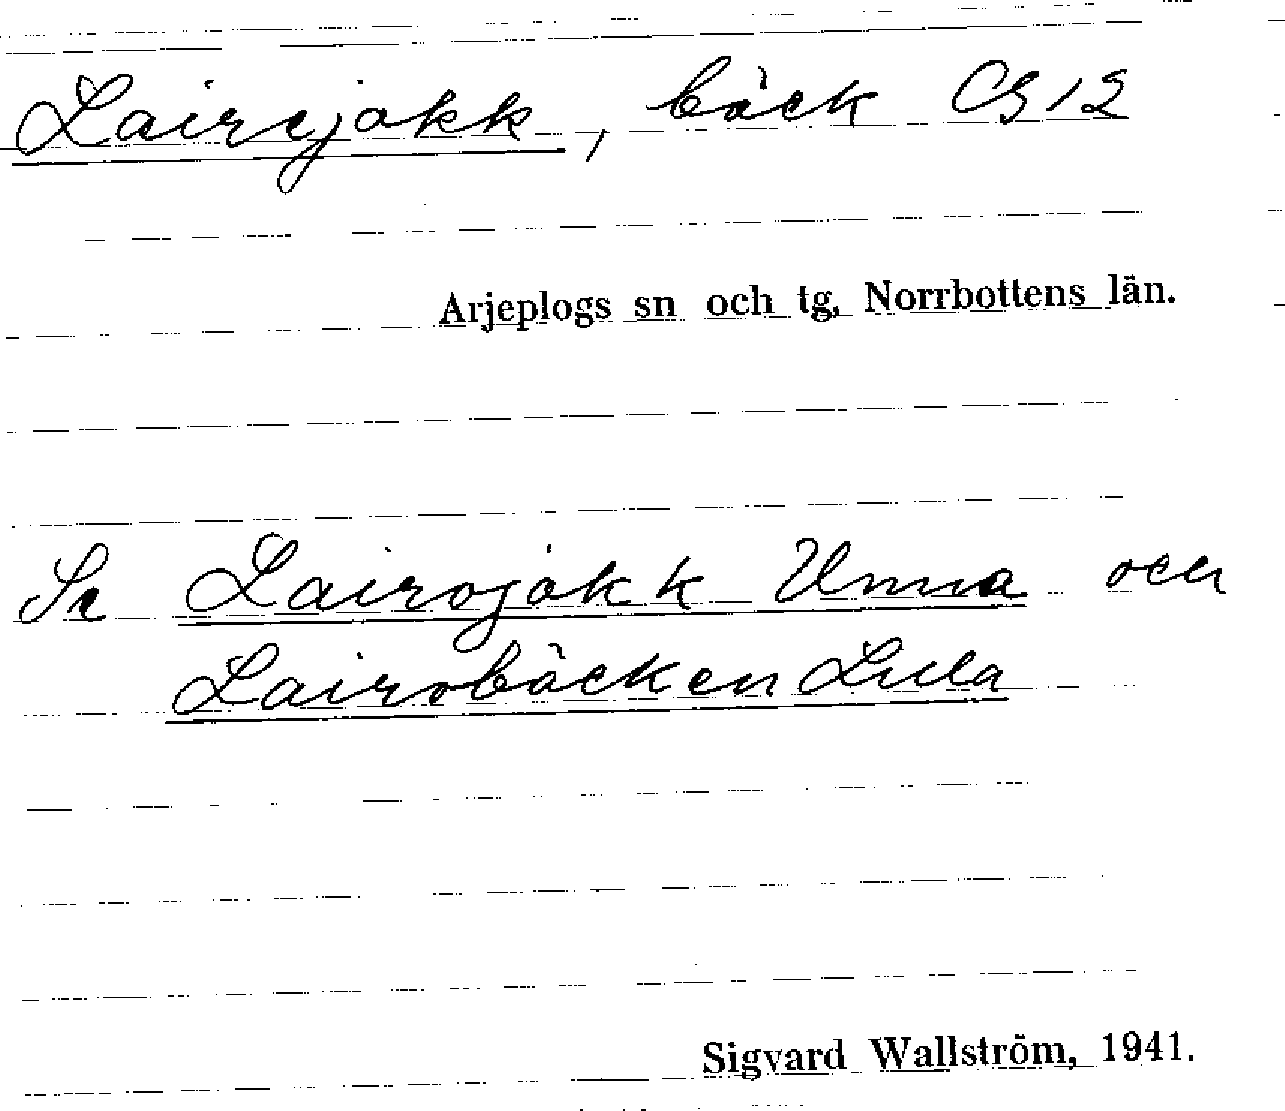 Lairejåkk, bäck C512
Arjeplogs sn och tg, Norrbottens län.
Se Lairojåkk Unna och
Lairobäcken Lula
Sigvard Wallström, 1941.